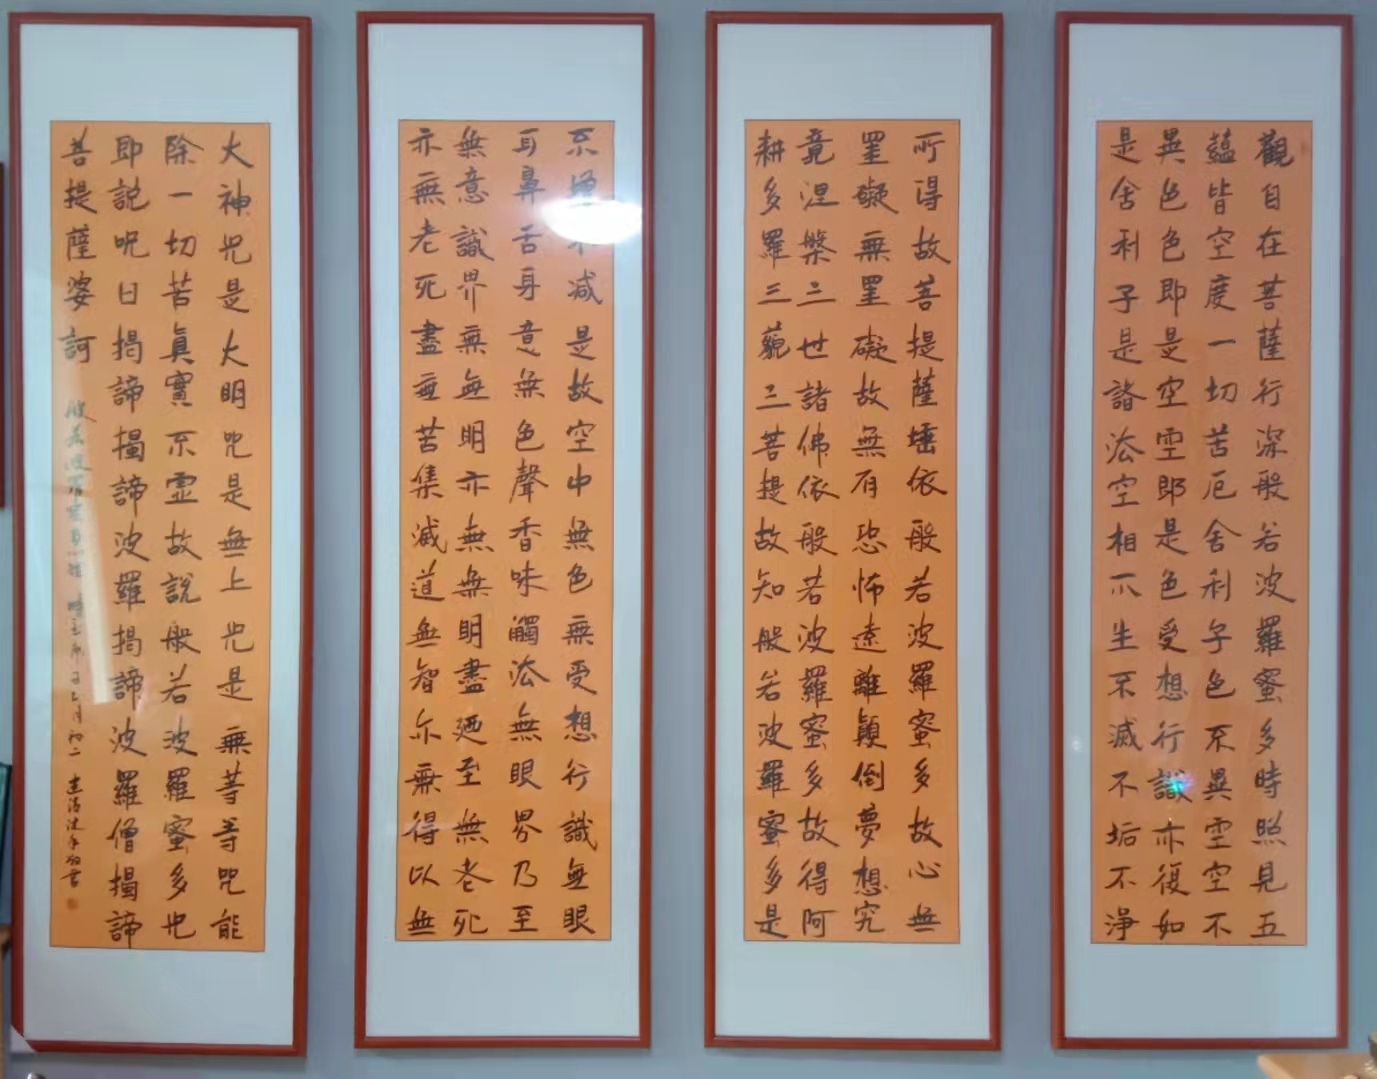 觀自在菩薩行深般若波羅蜜多時照見五
蘊皆空度一切苦厄舍利子色不異空空不
異色色即是空空即是色受想行識亦復如
是舍利子是諸法空相不生不滅不垢不淨
所得故菩提薩埵依般若波羅蜜多故心無
罣礙無罣礙故無有恐怖遠離顛倒夢想究
竟涅槃三世諸佛依般若波羅蜜多故得阿
耨多羅三藐三菩提故知般若波羅蜜多是
不增不减是故空中無色無受想行識無眼
耳鼻舌身意無色聲香味觸法無眼界乃至
無意識界無無明亦無無明盡廼至無老死
亦無老死盡無苦集滅道無智亦無得以無
大神咒是大明咒是無上咒是無等等咒能
除一切苦真實不虛故說般若波羅蜜多咒
即說呪曰揭諦揭諦波羅揭諦波羅僧揭諦
菩提薩婆訶
般若波羅蜜 月初二